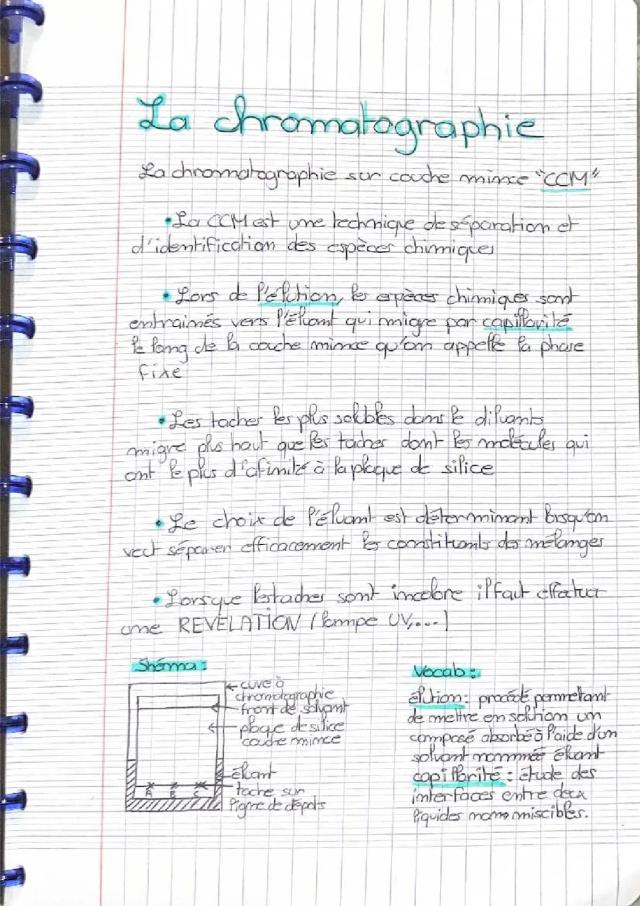 La chromatographie
La chromatographie sur couche mince "CCM"
• La CCM est une technique de séparation et
d'identification des espèces chimiques
• Lors de l'élution, les espèces chimiques sont
entrainés vers l'Éluant qui migre par capillarité
le long de la couche mince qu'on appelle la phase
fixe
• Les taches les plus solubles dans le diluants
migre plus haut que les taches dont les molécules qui
ont le plus d'afinité à la plaque de silice
• Le choix de l'éluant est déterminant lorsqu'on
veut séparer efficacement les constituants des mélanges
• Lorsque les taches sont incolore il faut effectuer
une REVELATION (lampe UV,...)
Shéma :
cuve à
chromatographie
front de solvant
plaque de silice
couche mince
éluant
tache sur
ligne de dépots
A B C
Vocab :
élution : procédé permetant
de mettre en solution un
composé absorbé à l'aide d'un
solvant nommée éluant
capillarité : étude des
interfaces entre deux
liquides non miscibles.